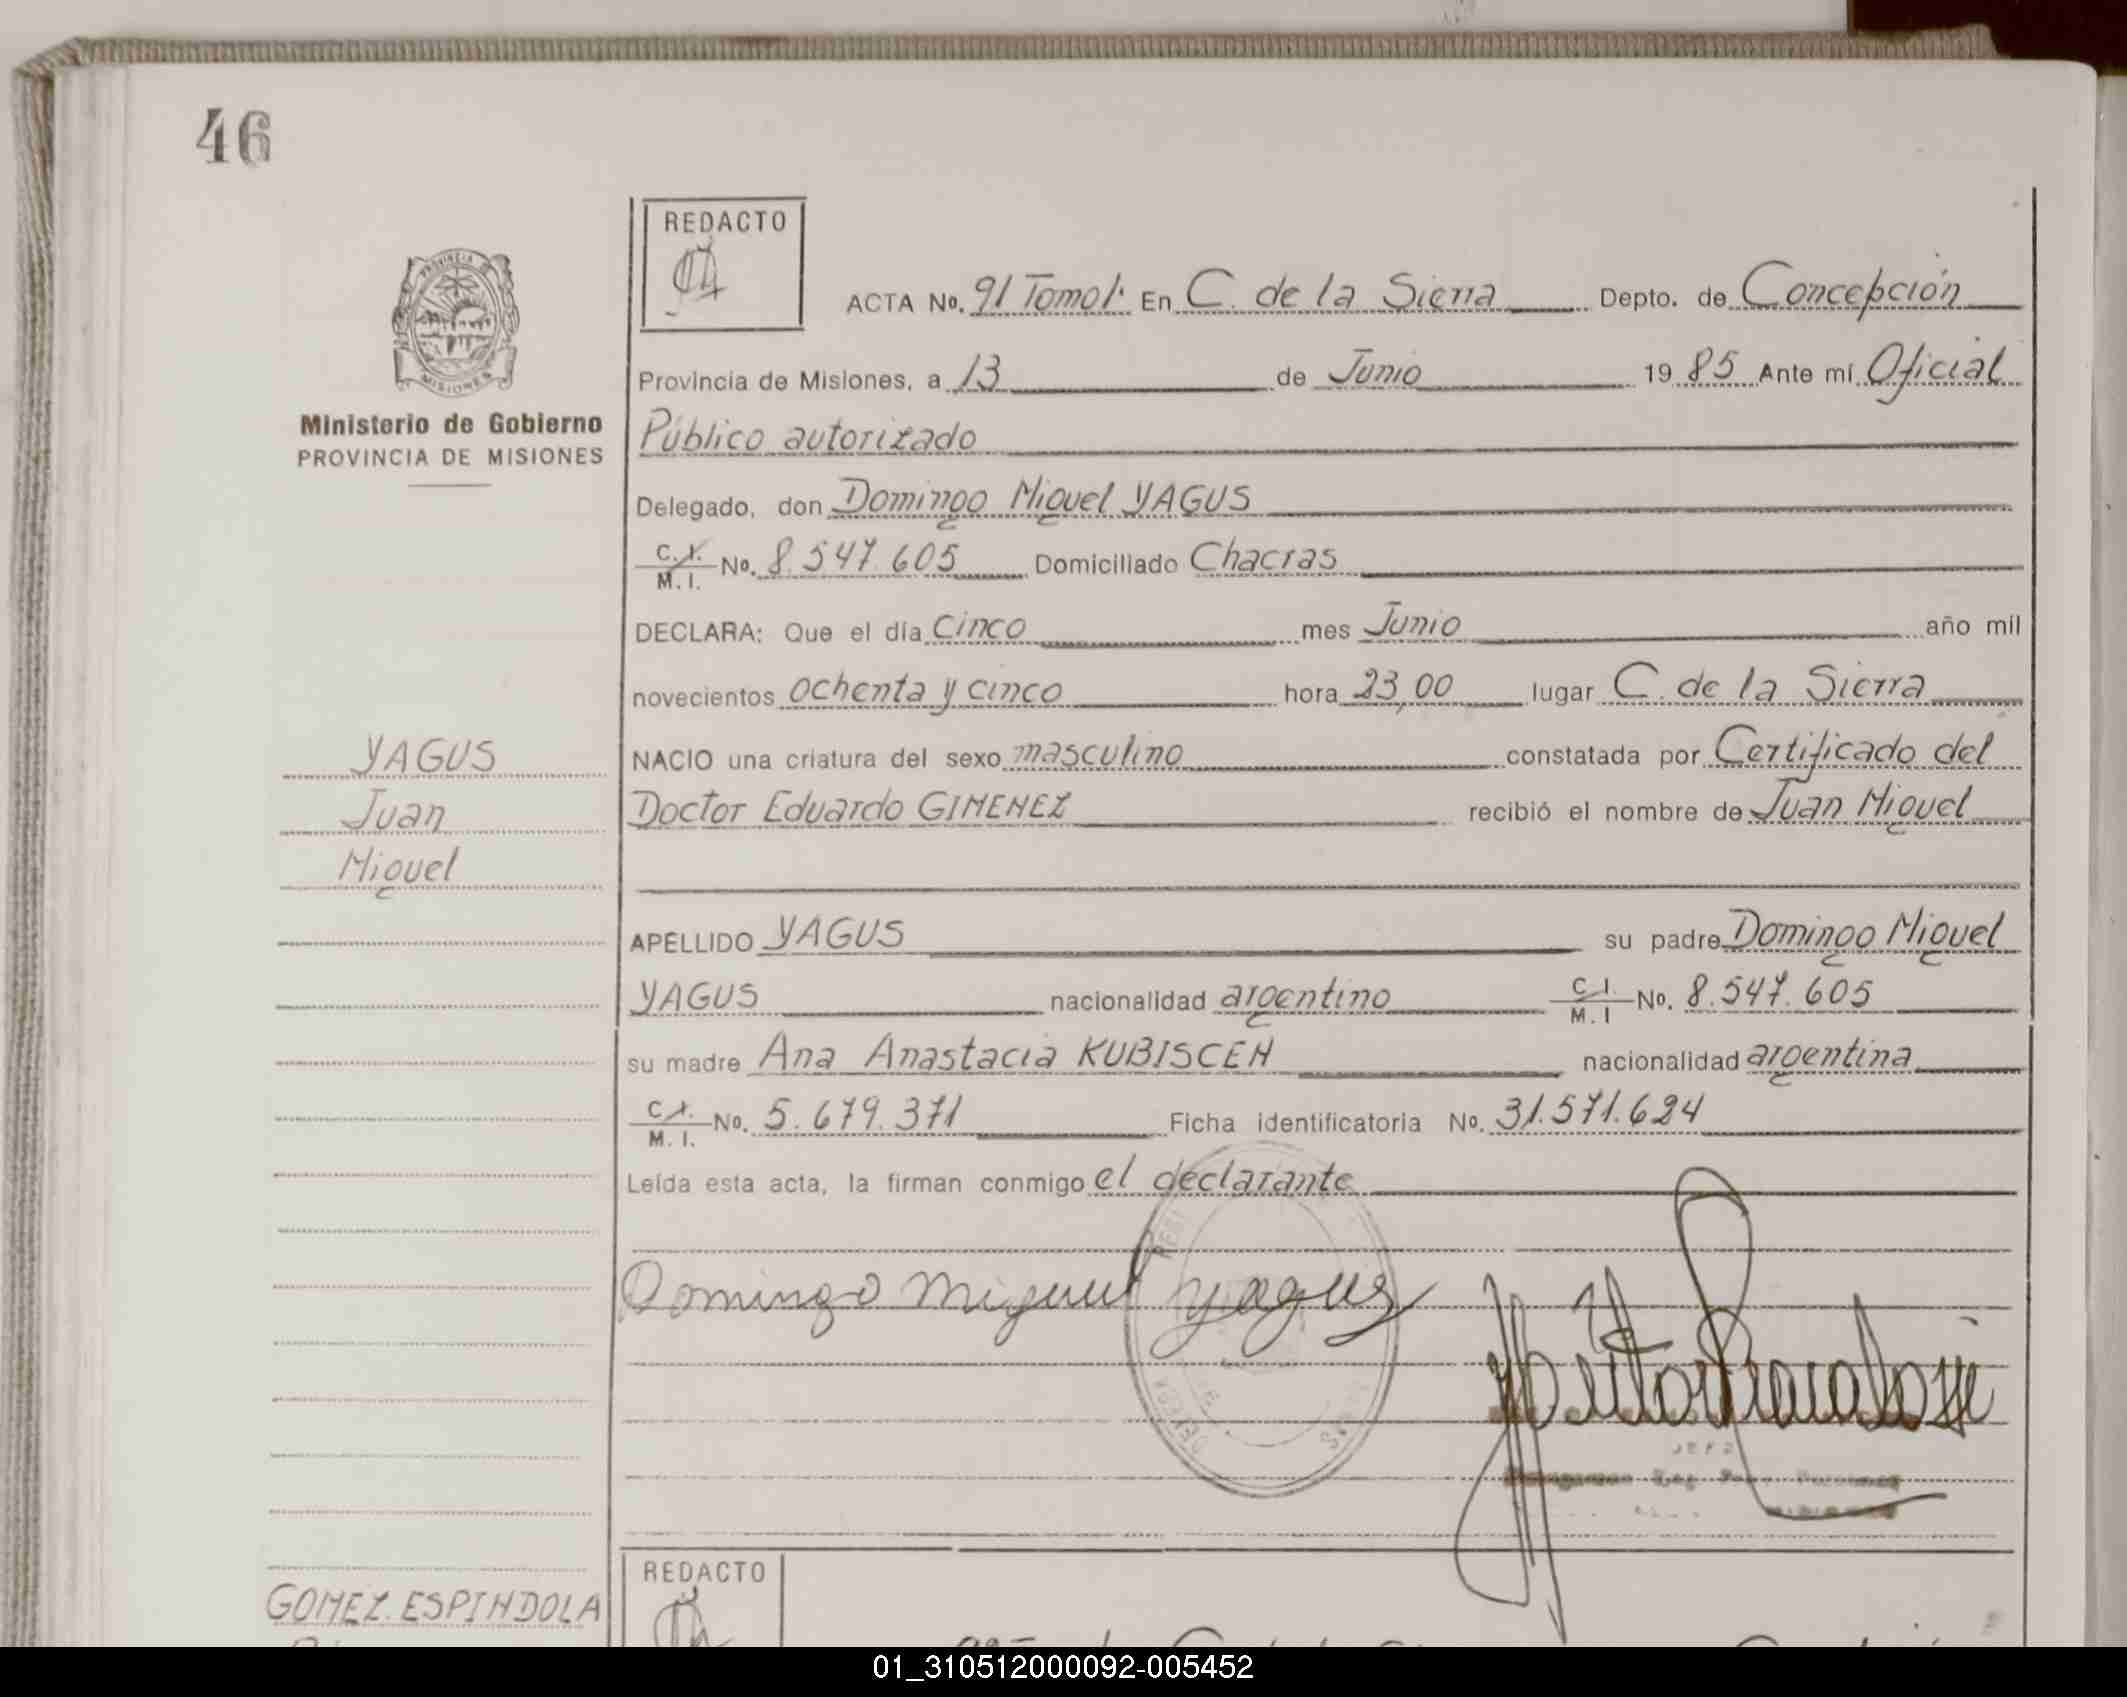 46
REDACTO
PROVINCIA
MISIONES
Ministerio de Gobierno
PROVINCIA DE MISIONES
ACTA No. 91 Tomo 1· En C. de la Sierra Depto. de Concepción
Provincia de Misiones, a 13 de Junio 1985 Ante mí Oficial
Público autorizado
Delegado, don Domingo Miguel YAGUS
C.I. M.I. No. 8.547.605 Domiciliado Chacras
DECLARA: Que el día cinco mes Junio año mil
novecientos ochenta y cinco hora 23,00 lugar C. de la Sierra
NACIO una criatura del sexo masculino constatada por Certificado del
Doctor Eduardo GIMENEZ recibió el nombre de Juan Miguel
YAGUS
Juan
Miguel
APELLIDO YAGUS su padre Domingo Miguel
YAGUS nacionalidad argentino C.I. M.I No. 8.547.605
su madre Ana Anastacia KUBISCEN nacionalidad argentina
C.I. M.I. No. 5.679.371 Ficha identificatoria No. 31.571.624
Leída esta acta, la firman conmigo el declarante
Domingo Miguel Yagus
JEFE
REDACTO
GOMEZ ESPINDOLA
01_310512000092-005452